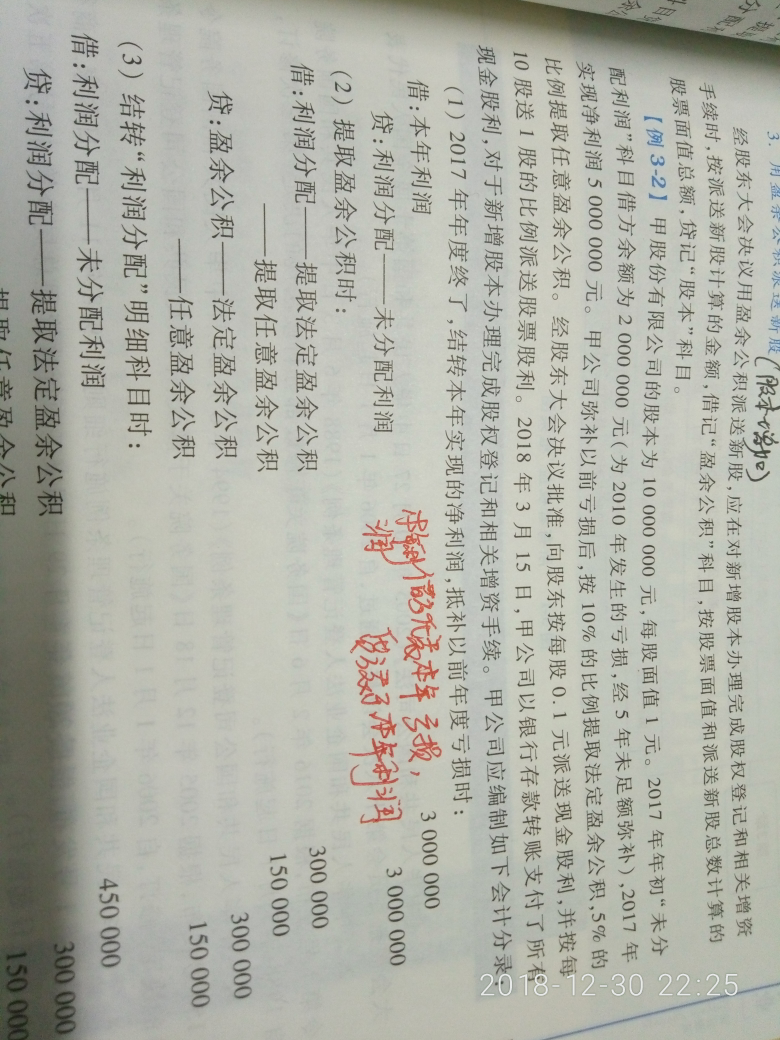 3. 用盈余公积派送新股(股本增加)
经股东大会决议用盈余公积派送新股,应在对新增股本办理完成股权登记和相关增资
手续时,按派送新股计算的金额,借记“盈余公积”科目,按股票面值和派送新股总数计算的
股票面值总额,贷记“股本”科目。
【例 3-2】 甲股份有限公司的股本为 10 000 000 元,每股面值 1 元。2017 年年初“未分
配利润”科目借方余额为 2 000 000 元(为 2010 年发生的亏损,经 5 年未足额弥补),2017 年
实现净利润 5 000 000 元。甲公司弥补以前亏损后,按 10% 的比例提取法定盈余公积,5% 的
比例提取任意盈余公积。经股东大会决议批准,向股东按每股 0.1 元派送现金股利,并按每
10 股送 1 股的比例派送股票股利。2018 年 3 月 15 日,甲公司以银行存款转账支付了所有
现金股利,对于新增股本办理完成股权登记和相关增资手续。甲公司应编制如下会计分录:
(1) 2017 年年度终了,结转本年实现的净利润,抵补以前年度亏损时:
借:本年利润 3 000 000
贷:利润分配——未分配利润 3 000 000
借方代表本年亏损,
本年利润
(2) 提取盈余公积时:
借:利润分配——提取法定盈余公积 300 000
——提取任意盈余公积 150 000
贷:盈余公积——法定盈余公积 300 000
——任意盈余公积 150 000
(3) 结转“利润分配”明细科目时:
借:利润分配——未分配利润 450 000
贷:利润分配——提取法定盈余公积 300 000
提取任意盈余公积 150 000
2018-12-30 22:25